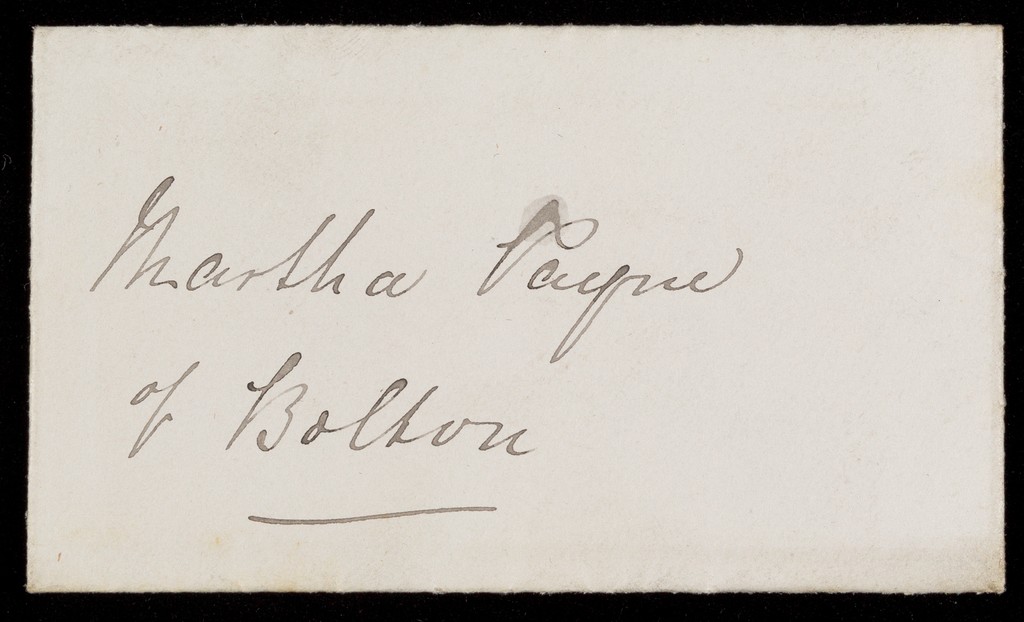 Martha Payne
of Bolton